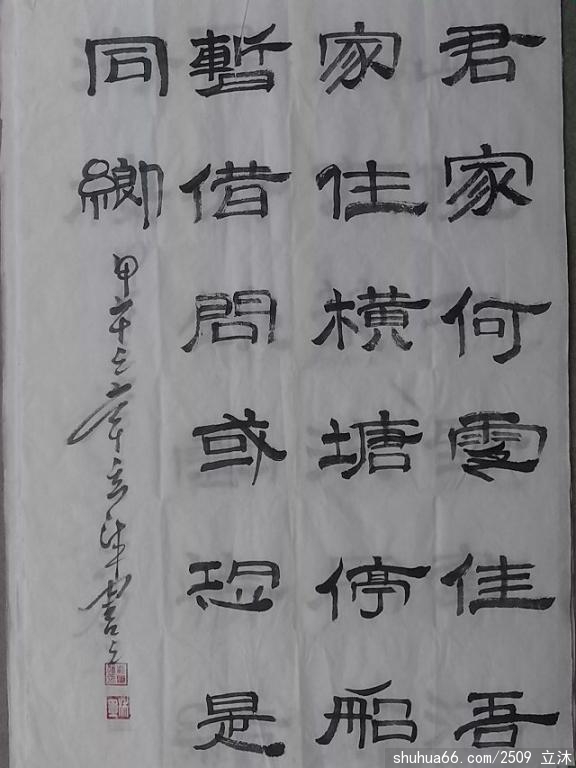 君家何處佳吾
家住橫塘停船
暫借問或恐是
同鄉
甲午之 立沐書
shuhua66.com/2509 立沐